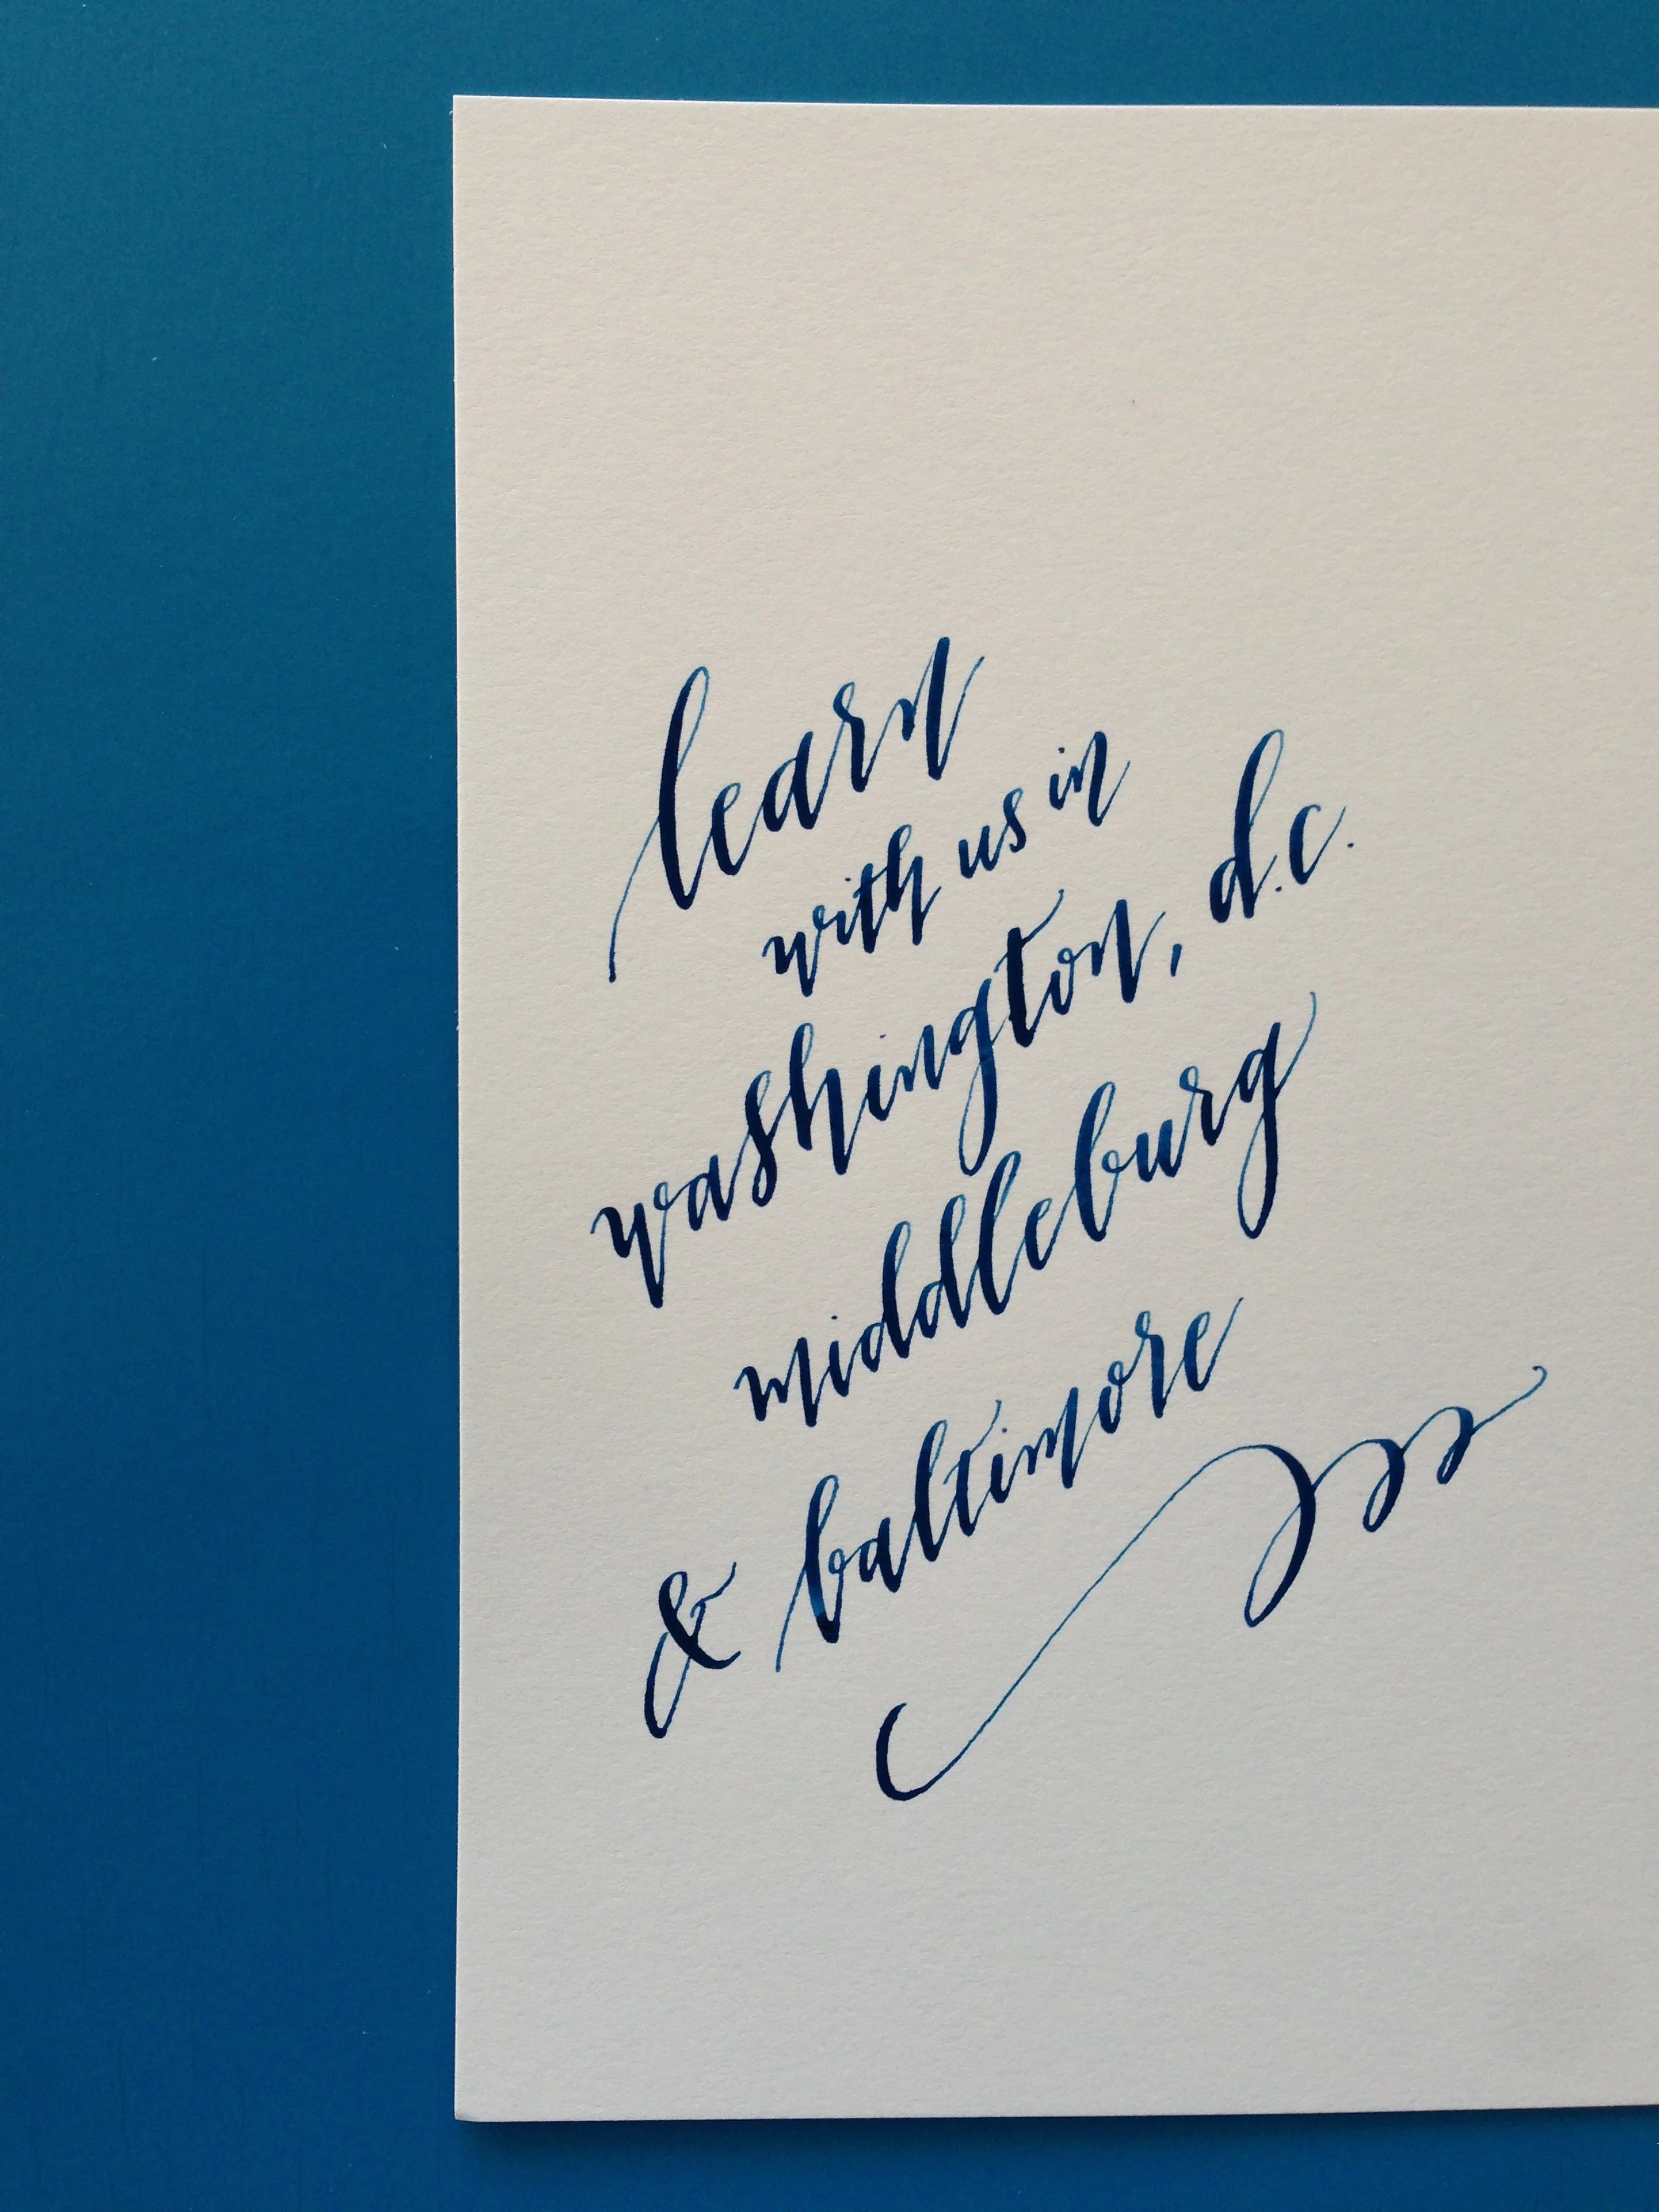 learn
with us in
washington, d.c.
middleburg
& baltimore